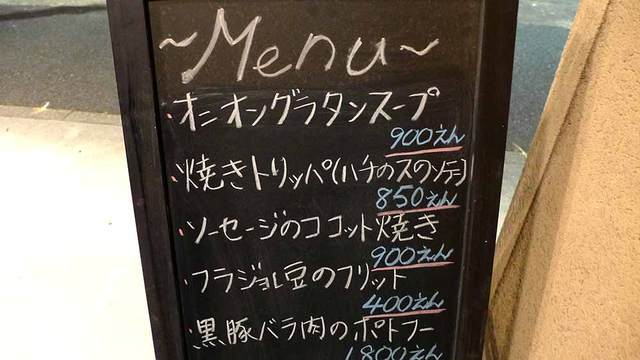 ~Menu~
・オニオングラタンスープ
900えん
・焼きトリッパ(ハチのスのソテー)
850えん
・ソーセージのココット焼き
900えん
・フラジョレ豆のフリット
400えん
・黒豚バラ肉のポトフー
1800えん